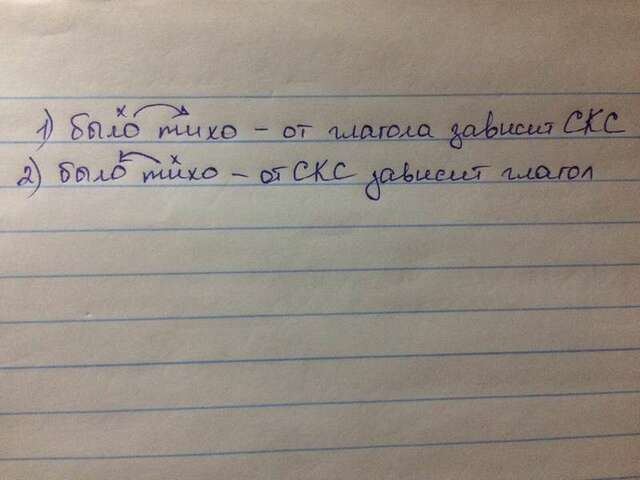 1) было тихо – от глагола зависит СКС
2) было тихо – от СКС зависит глагол